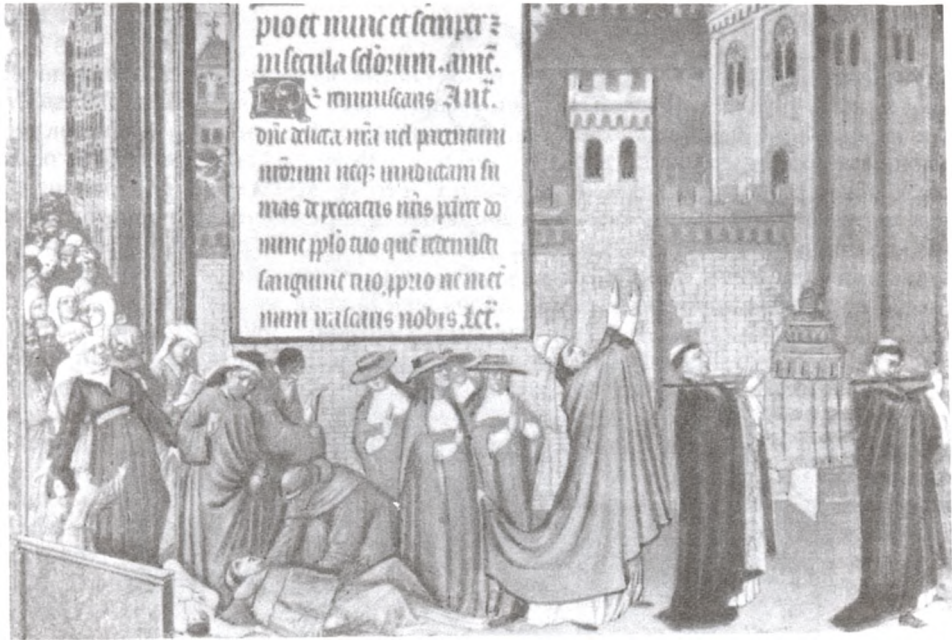 pio et nunc et semper ⁊
in secula sclorum. amē.
Ne reminiscaris Ant.
dn̄e delicta nr̄a vel parentum
nr̄orum neqꝫ vindictam su
mas de peccatis nr̄is parce do
mine pplo tuo quē redemisti
sanguine tuo pprio ne in et̄
num irascaris nobis